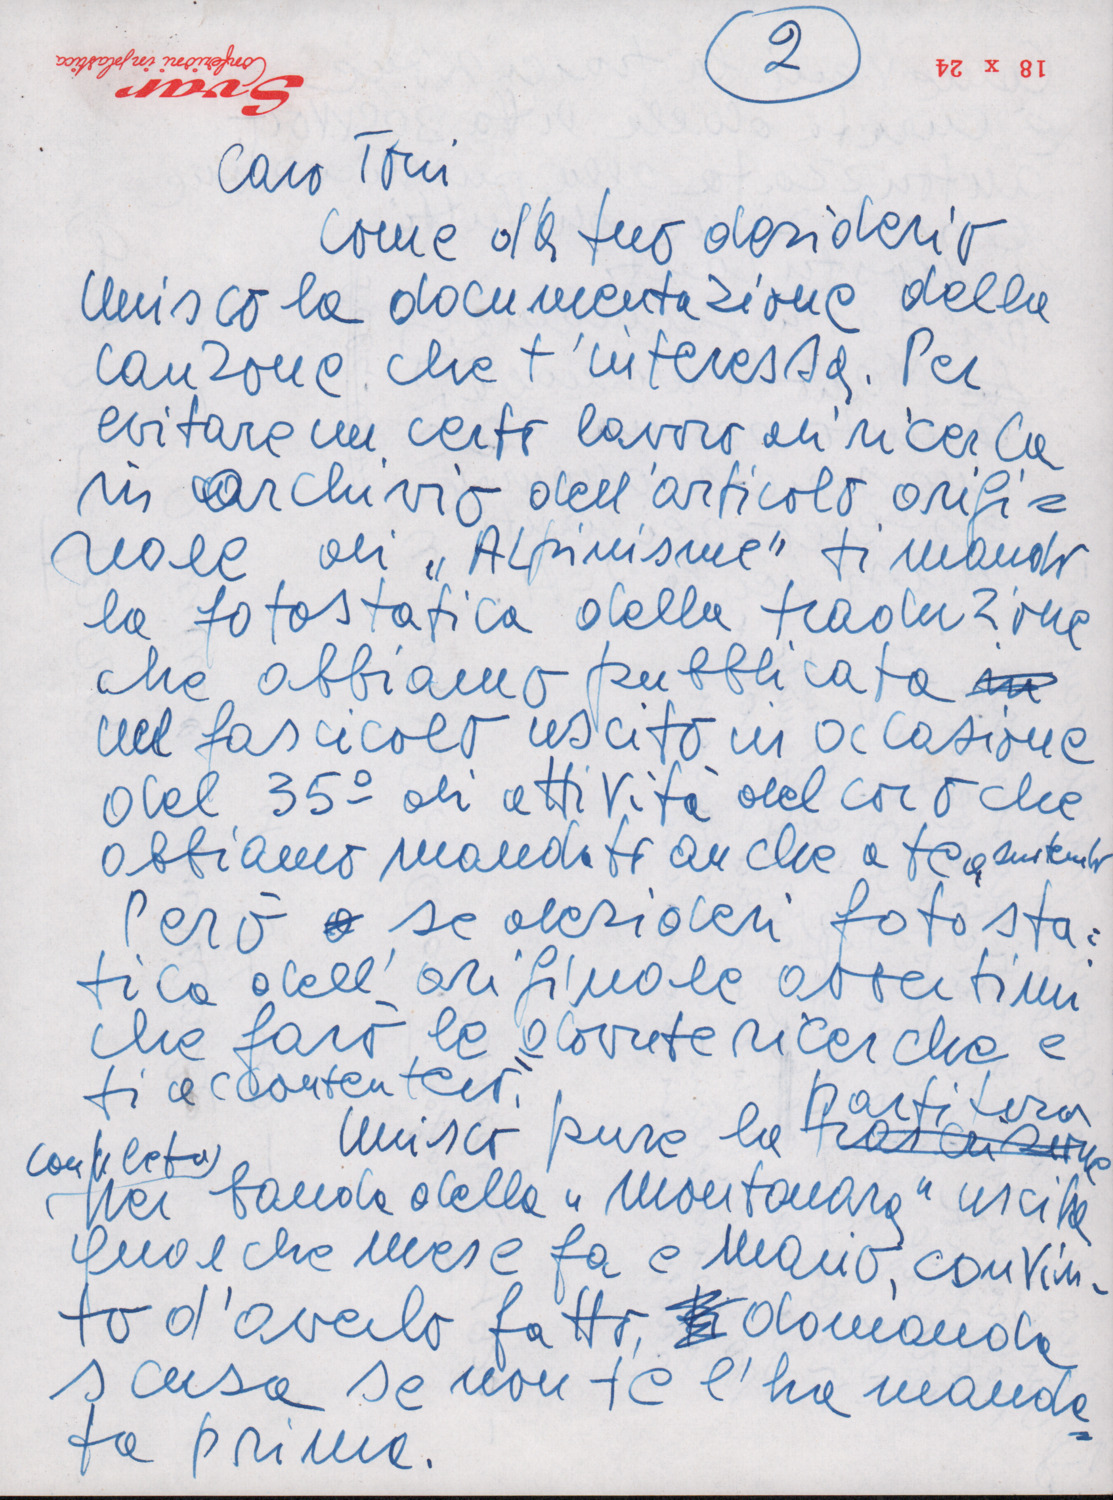 2
18 x 24
Svar
Confezioni in plastica
Caro Toni
come da tuo desiderio
unisco la documentazione della
canzone che t'interessa. Per
evitare un certo lavoro di ricerca
in archivio dell'articolo origi=
nale di „Alpinisme" ti mando
la fotostatica della traduzione
che abbiamo pubblicata in
nel fascicolo uscito in occasione
del 35º di attività del coro che
abbiamo mandato anche a te a suo tempo
Però se desideri fotosta=
tica dell'originale avvertimi
che farò le dovute ricerche e
ti accontenterò.
Unisco pure la partitura
completa
per banda della "Montanara" uscita
qualche mese fa e Mario, convin-
to d'averlo fatto, domanda
scusa se non te l'ha manda=
ta prima.